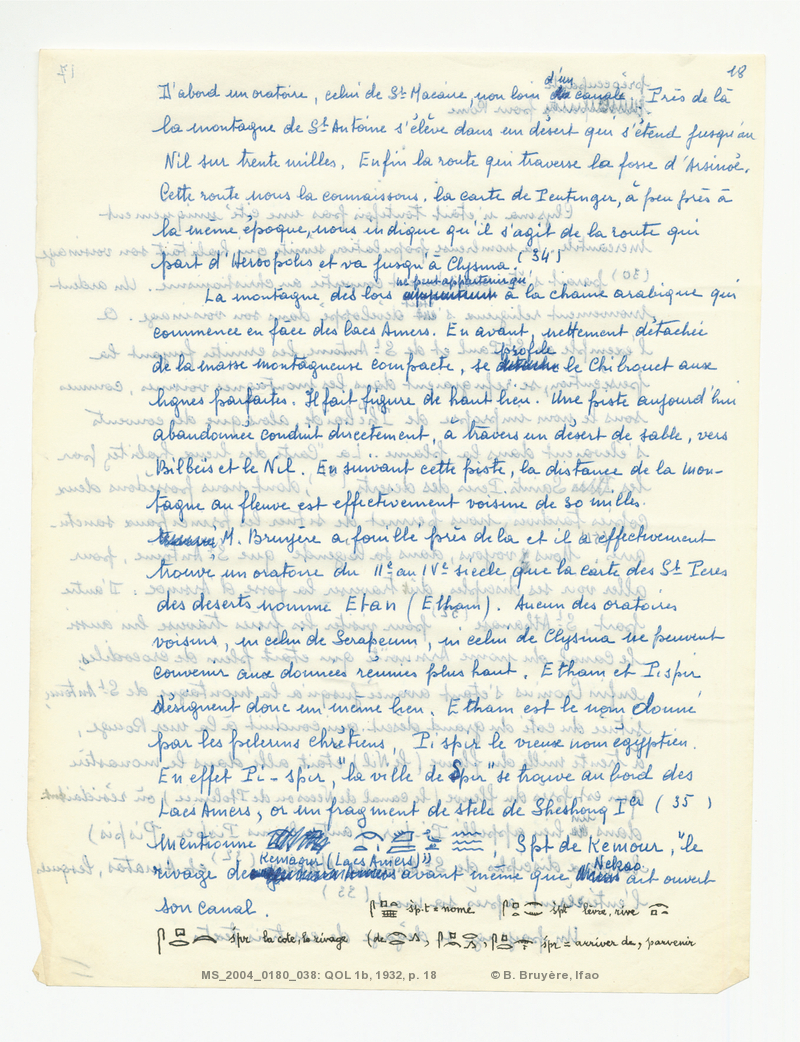 18
D'abord un oratoire, celui de St Macaire, non loin d'un canal. Près de là
la montagne de St Antoine s'élève dans un désert qui s'étend jusqu'au
Nil sur trente milles. Enfin la route qui traverse la fosse d'Arsinoë.
Cette route nous la connaissons. la carte de Peutinger, à peu près à
la même époque, nous indique qu'il s'agit de la route qui
part d'Héroopolis et va jusqu'à Clysma. (34)
La montagne dès lors ne peut appartenir qu'à la chaine arabique qui
commence en face des lacs Amers. En avant, nettement détachée
de la masse montagneuse compacte, se profile le Chebrouet aux
lignes parfaites. Il fait figure de haut lieu. Une piste aujourd'hui
abandonnée conduit directement, à travers un désert de sable, vers
Bilbeis et le Nil. En suivant cette piste, la distance de la mon-
tagne au fleuve est effectivement voisine de 30 milles.
M. Bruyère a fouillé près de la et il a effectivement
trouvé un oratoire du IIe au IVe siècle que la carte des St Pères
des déserts nomme Etan (Etham). Aucun des oratoires
voisins, ni celui de Serapeum, ni celui de Clysma ne peuvent
convenir aux données réunies plus haut. Etham et Pi spir
désignent donc un même lieu. Etham est le nom donné
par les pèlerins chrétiens, Pi spir le vieux nom égyptien.
En effet Pi-spir, "la ville de Spir" se trouve au bord des
Lacs Amers, or un fragment de stèle de Sheshonq Ier (35)
mentionne Spt de Kemour, "le
rivage de Kemour (Lacs Amers)" avant même que Nekao ait ouvert
son canal. śp.t = nome śpt lèvre, rive
spr la cote, le rivage (de , spr = arriver de, parvenir
MS_2004_0180_038: QOL 1b, 1932, p. 18 © B. Bruyère, Ifao